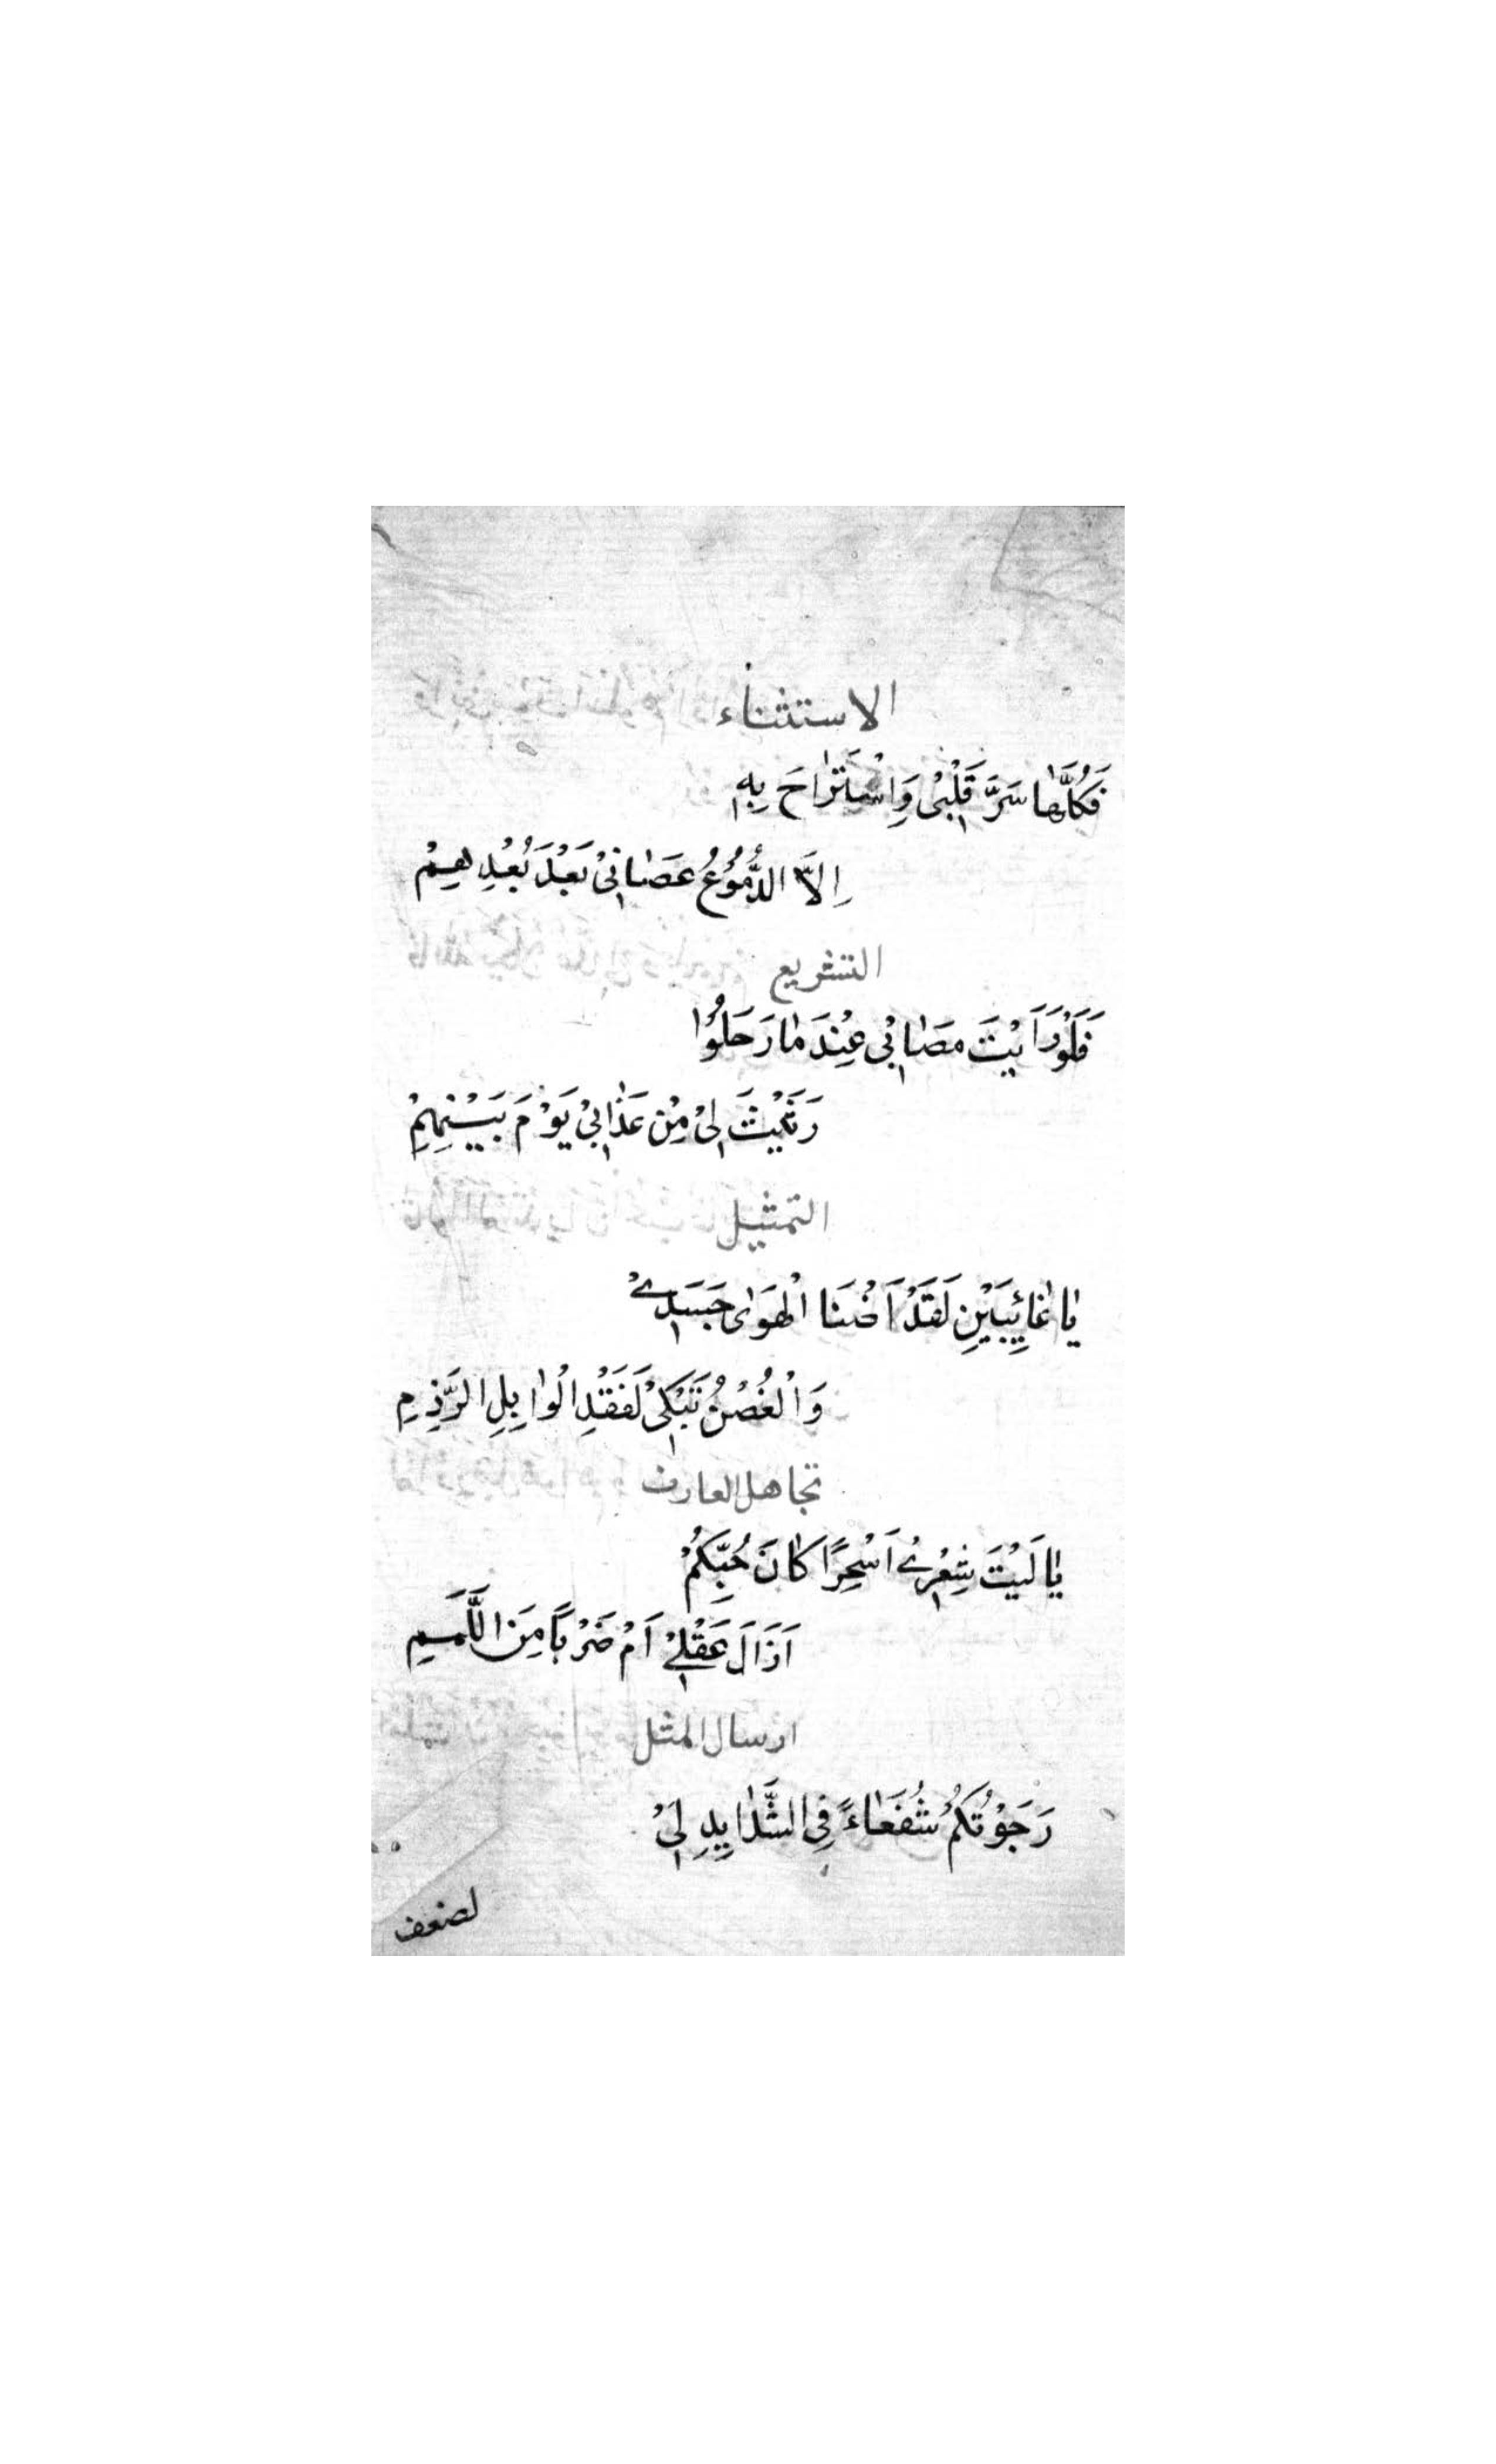 الاستثناء
فَكُلَّهَا سَرَّ قَلْبِيْ وَاسْتَرَاحَ بِهِ
اِلَّا الدُّمُوْعُ عَصَانِيْ بَعْدَ بُعْدِهِمْ
التشريع
فَلَوْ رَاَيْتَ مَصَابِيْ عِنْدَ مَا رَحَلُوْا
رَثَيْتَ لِيْ مِنْ عَذَابِيْ يَوْمَ بَيْنِهِمْ
التمثيل
يَا غَائِبَيْنِ لَقَدْ اَخْنَا الْهَوَى جَسَدِيْ
وَالْغُصْنُ تَبْكِيْ لَفَقْدِ الْوَابِلِ الرَّذِمِ
تجاهل العارف
يَا لَيْتَ شِعْرِيْ اَسْحِرًا كَانَ حُبِّكُمْ
اَزَالَ عَقْلِيْ اَمْ ضَرْبًا مِنَ اللَّمَمِ
ارسال المثل
رَجَوْتُكُمْ شُفَعَاءً فِي الشَّدَايِدِ لِيْ
لضعف